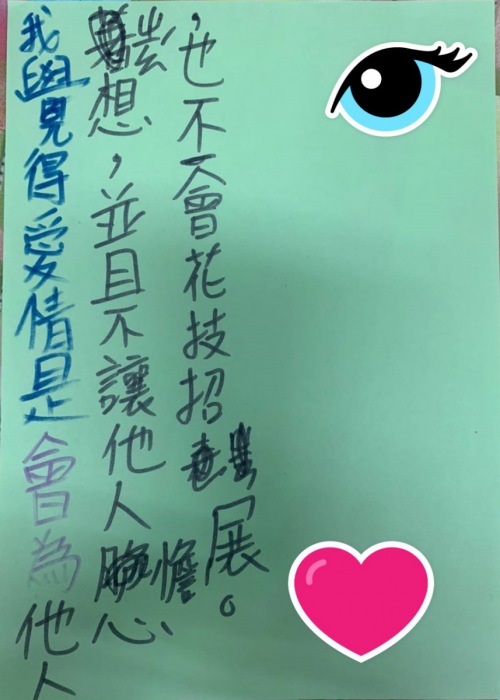 我覺得愛情是會為他人
想，並且不讓他人憺心
，也不會花技招展。